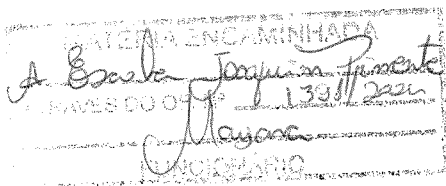 MATÉRIA ENCAMINHADA
A Escola Joaquim Pimente
ATRAVÉS DO OFº 139/2024
Mayana
FUNCIONÁRIO